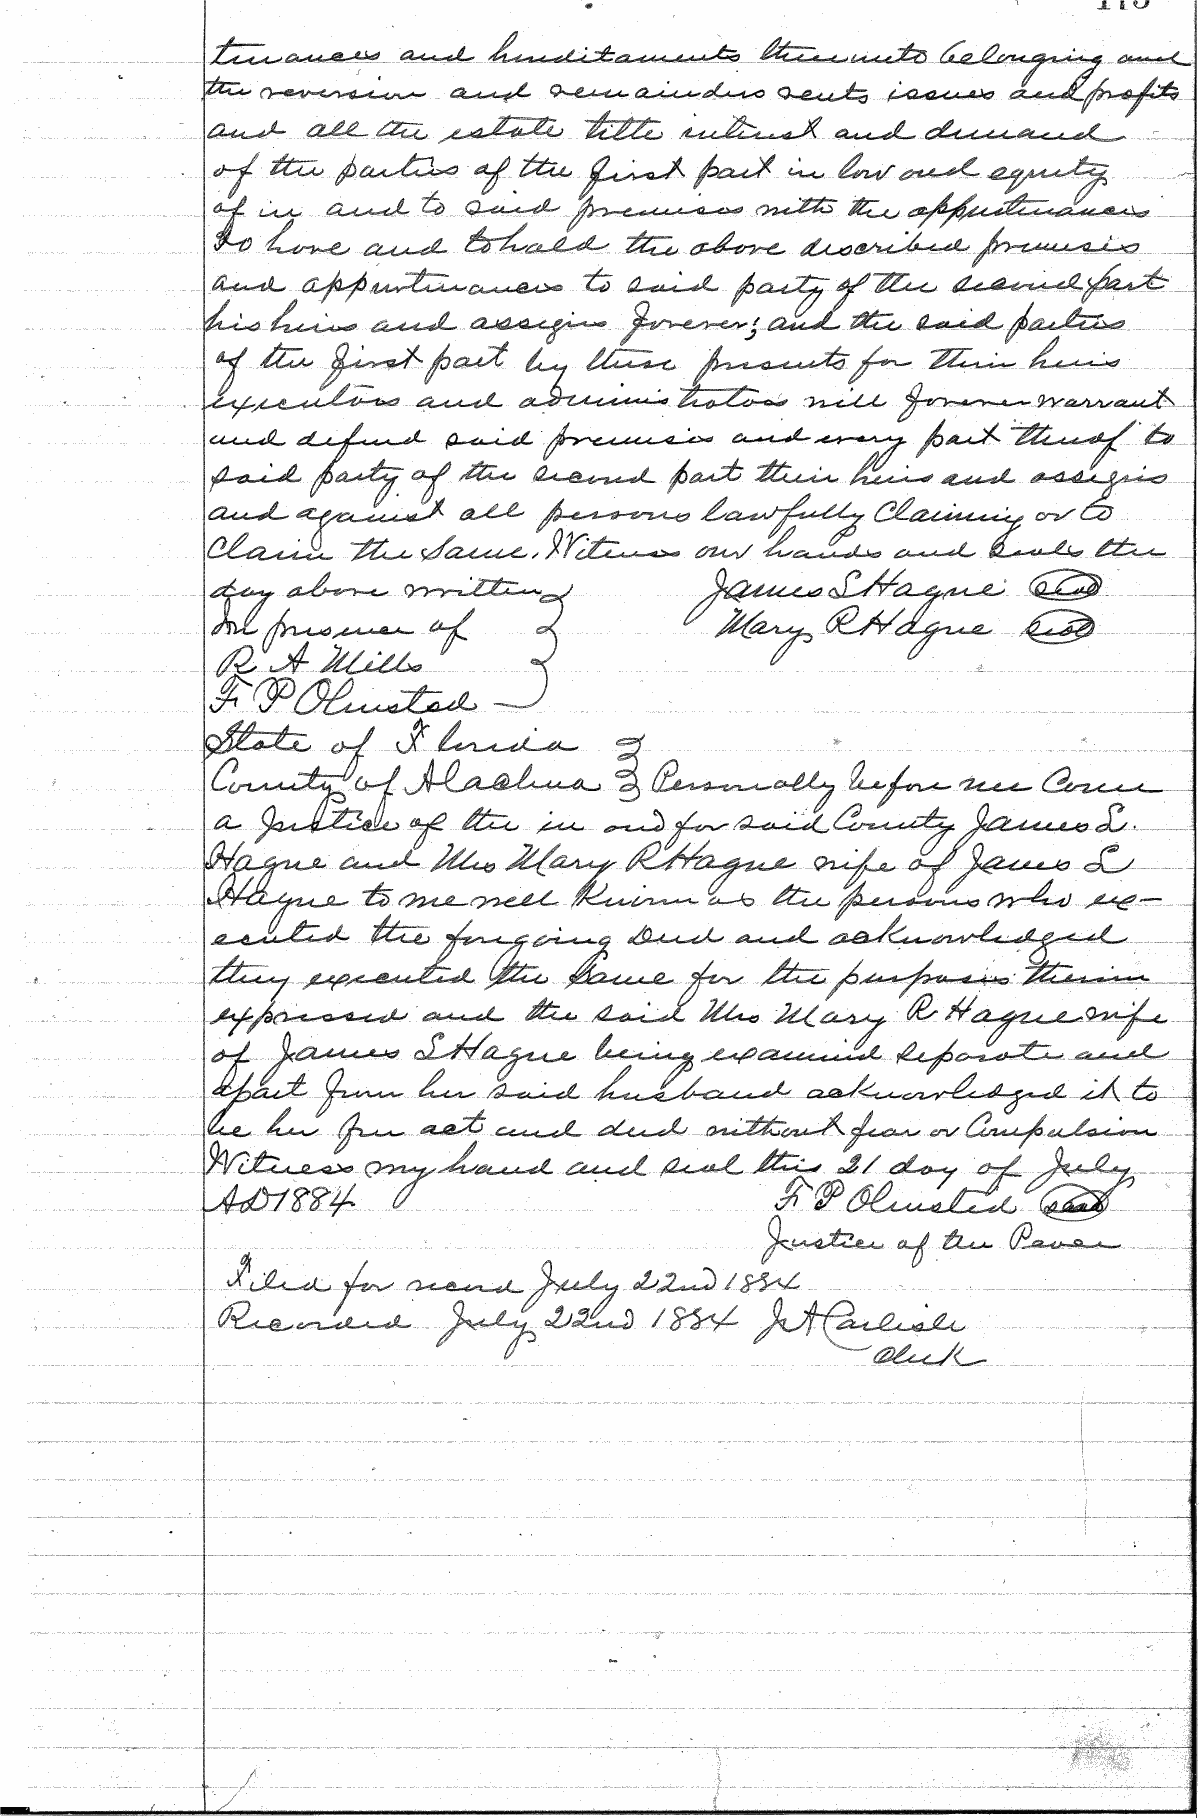 tenances and hereditaments thereunto belonging and
the reversion and remainders rents issues and profits
and all the estate title interest and demand
of the parties of the first part in law and equity
of in and to said premises with the appurtenances
To have and to hold the above described premises
and appurtenances to said party of the second part
his heirs and assigns forever; and the said parties
of the first part by these presents for their heirs
executors and administrators will forever warrant
and defend said premises and every part thereof to
said party of the second part their heirs and assigns
and against all persons lawfully Claiming or to
Claim the same. Witness our hands and seals the
day above written James S Hague seal
In presence of Mary R Hague seal
R A Mills
F P Olmsted
State of Florida
County of Alachua Personally before me Come
a Justice of the in and for said County James S.
Hague and Mrs Mary R Hague wife of James S
Hague to me well Known as the persons who ex-
ecuted the foregoing Deed and acknowledged
they executed the same for the purposes therein
expressed and the said Mrs Mary R Hague wife
of James S Hague being examined separate and
apart from her said husband acknowledged it to
be her free act and deed without fear or Compulsion
Witness my hand and seal this 21 day of July
AD 1884 F P Olmsted seal
Justice of the Peace
Filed for record July 22nd 1884
Recorded July 22nd 1884 J A Carlisle
Clerk